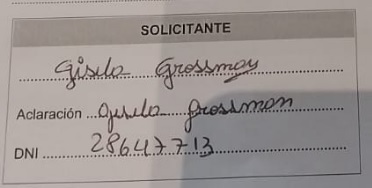 SOLICITANTE
Gisela Grossman
Aclaración Gisela Grossman
DNI 28647713